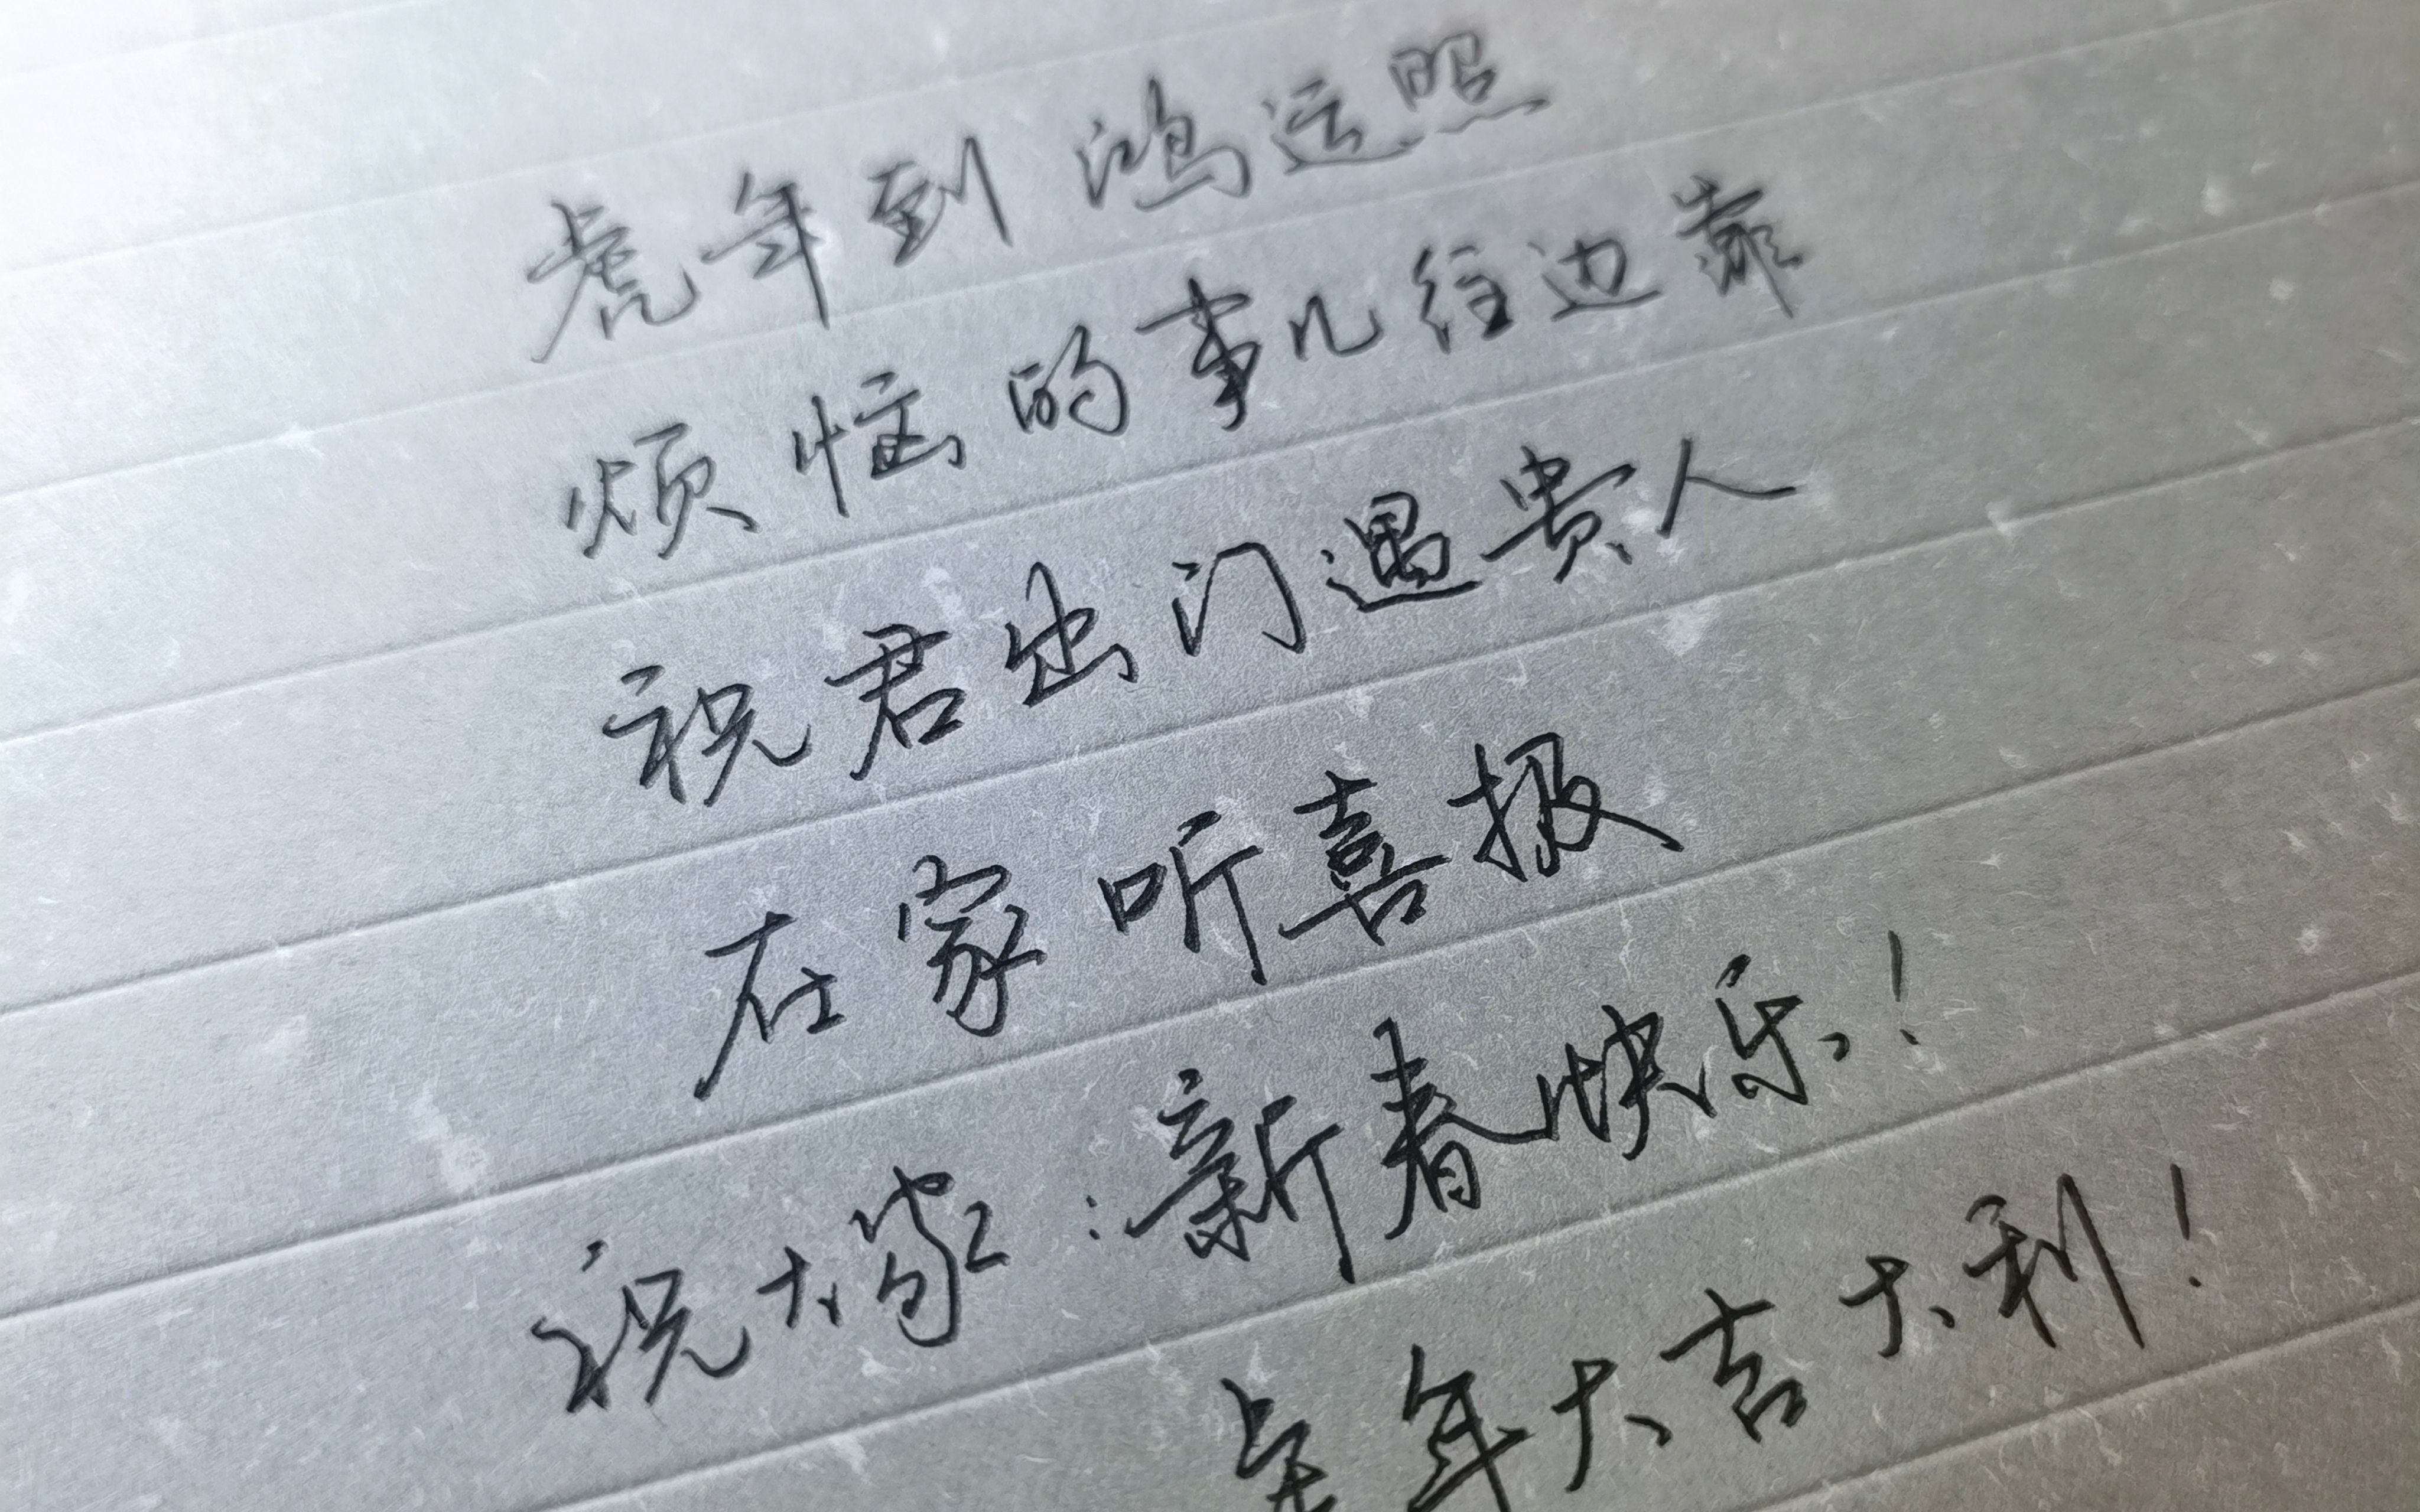 虎年到 鸿运照
烦恼的事儿往边靠
祝君出门遇贵人
在家听喜报
祝大家:新春快乐!
虎年大吉大利!